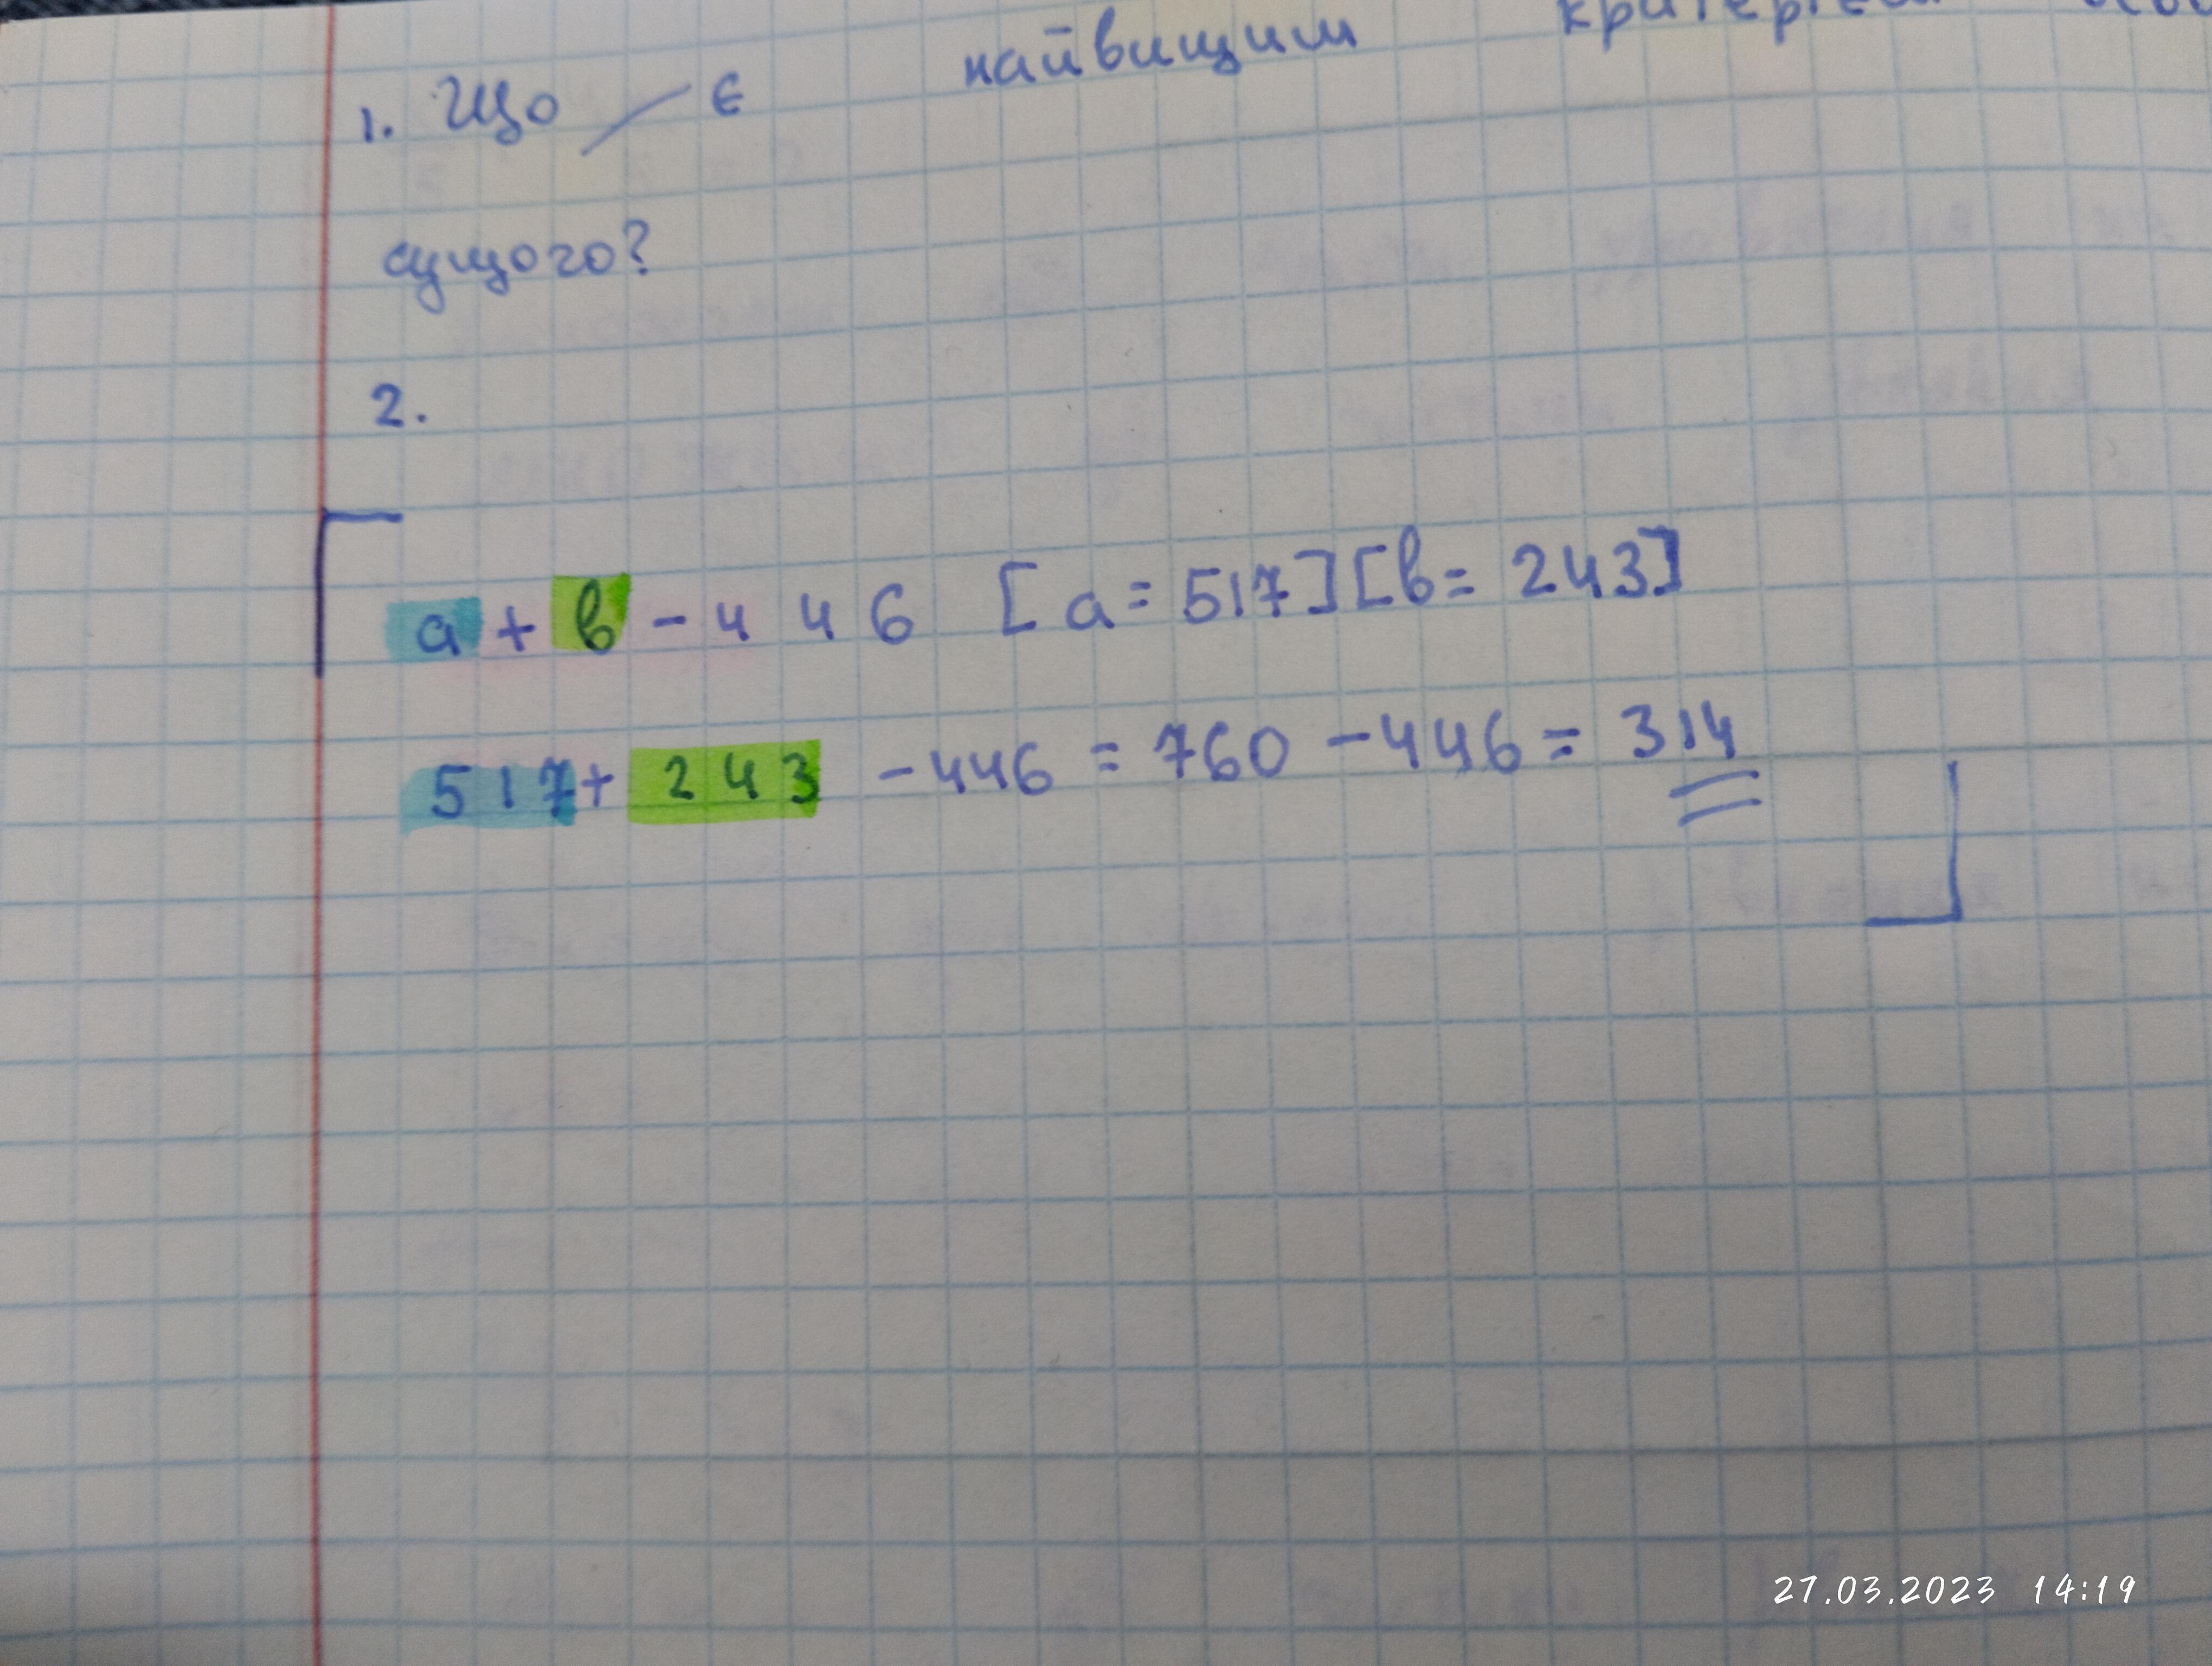 1. Що є найвищим критерієм
сущого?
2.
a + b - 446 [a = 517] [b = 243]
517 + 243 - 446 = 760 - 446 = 314
27.03.2023 14:19